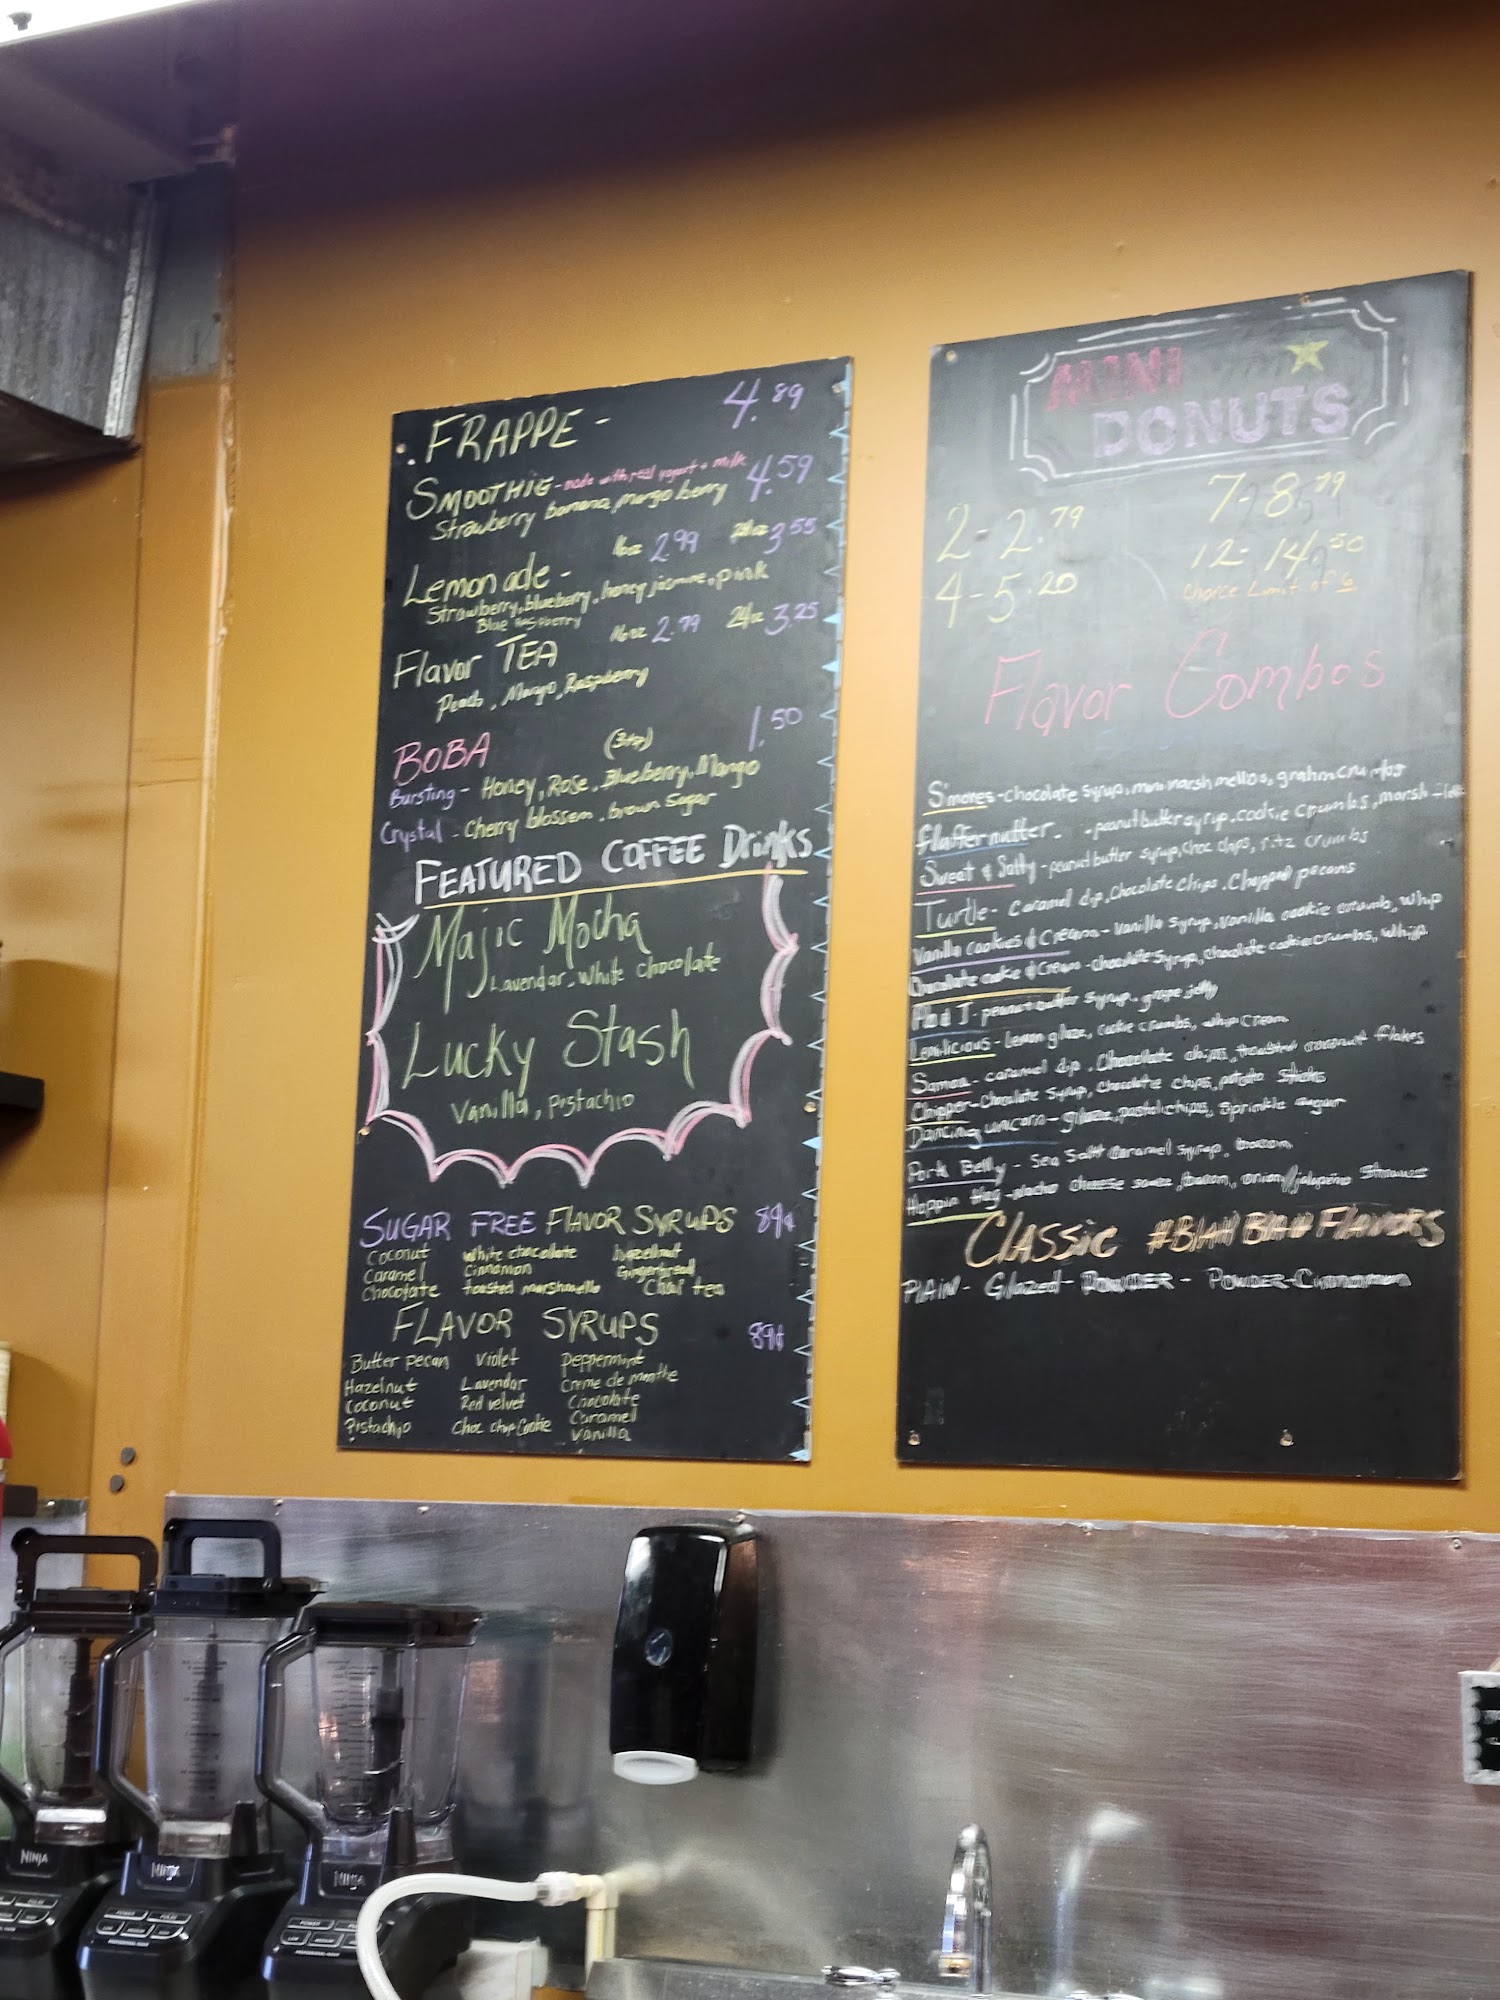 FRAPPE - 4.89
SMOOTHIE - made with real yogurt + milk 4.59
Strawberry banana, mango berry
16oz 2.99 24oz 3.55
Lemonade -
Strawberry, blueberry, honey jasmine, pink
Blue Raspberry
16oz 2.79 24oz 3.25
Flavor TEA
Peach, Mango, Raspberry
BOBA 1.50
Bursting - Honey, Rose, Blueberry, Mango
Crystal - Cherry blossom, brown sugar
FEATURED COFFEE Drinks
Majic Mocha
Lavendar, White Chocolate
Lucky Stash
Vanilla, Pistachio
SUGAR FREE FLAVOR SYRUPS 89¢
Coconut White chocolate hazelnut
Caramel Cinnamon Gingerbread
Chocolate toasted marshmello Chai tea
FLAVOR SYRUPS 89¢
Butter pecan Violet Peppermint
Hazelnut Lavendar Creme de menthe
Coconut Red velvet Chocolate
Pistachio Choc chip Cookie Caramel
Vanilla
MINI
DONUTS
2 - 2.79 7 - 8.79
4 - 5.20 12 - 14.50
Choice Limit of 6
Flavor Combos
S'mores - chocolate syrup, mini marshmellos, grahm crumbs
fluffernutter - peanut butter syrup, cookie crumbs, marsh
Sweet & Salty - peanut butter syrup, choc chips, ritz crumbs
Turtle - Caramel dip, Chocolate Chips, Chopped pecans
Vanilla cookies & Cream - Vanilla syrup, vanilla cookie crumb, whip
Chocolate cookie & Cream - chocolate syrup, chocolate cookie crumbs, whip
PB and J - peanut butter syrup, grape jelly
Lemilicious - lemon glaze, cookie crumbs, whip cream
Samoa - caramel dip, Chocolate chips, toasted coconut flakes
Chipper - Chocolate syrup, chocolate chips, potato Sticks
Dancing unicorn - glaze, pastel chips, sprinkle sugar
Pork Belly - Sea Salt Caramel syrup, bacon
Hoppin Hog - Nacho cheese sauce, bacon, onion/jalapeño
CLASSIC #BLAH BLAH FLAVORS
PLAIN - Glazed - POWDER - POWDER-Cinnamon
NINJA
NINJA
NINJA